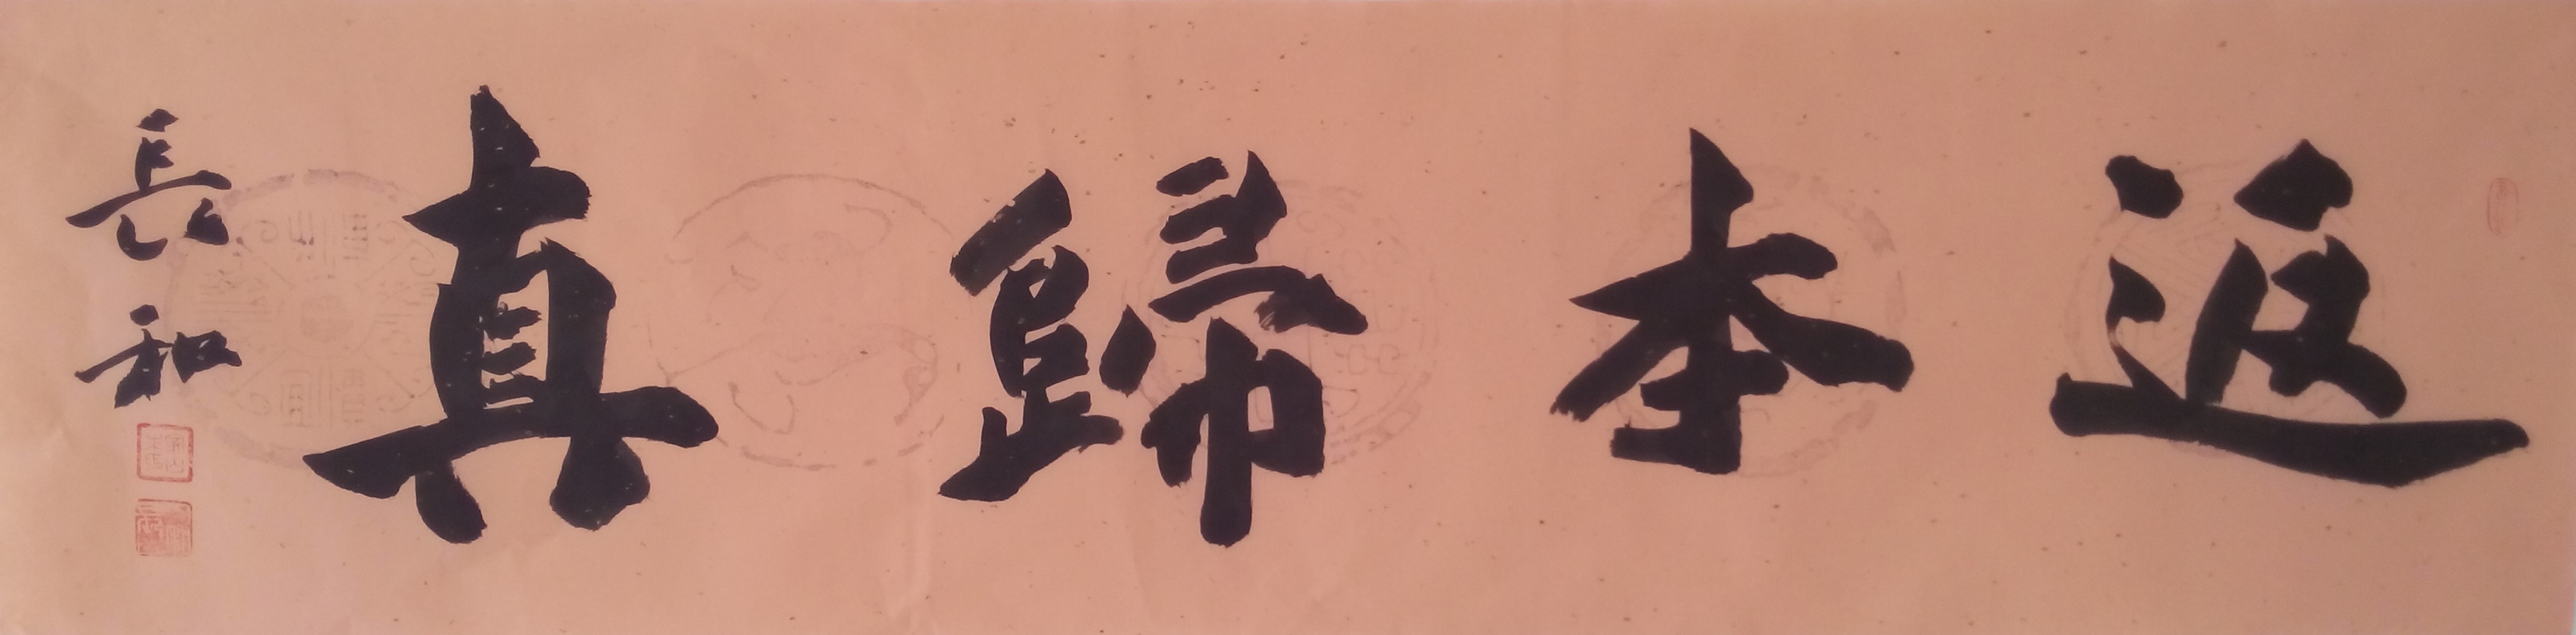 返本歸真
長和